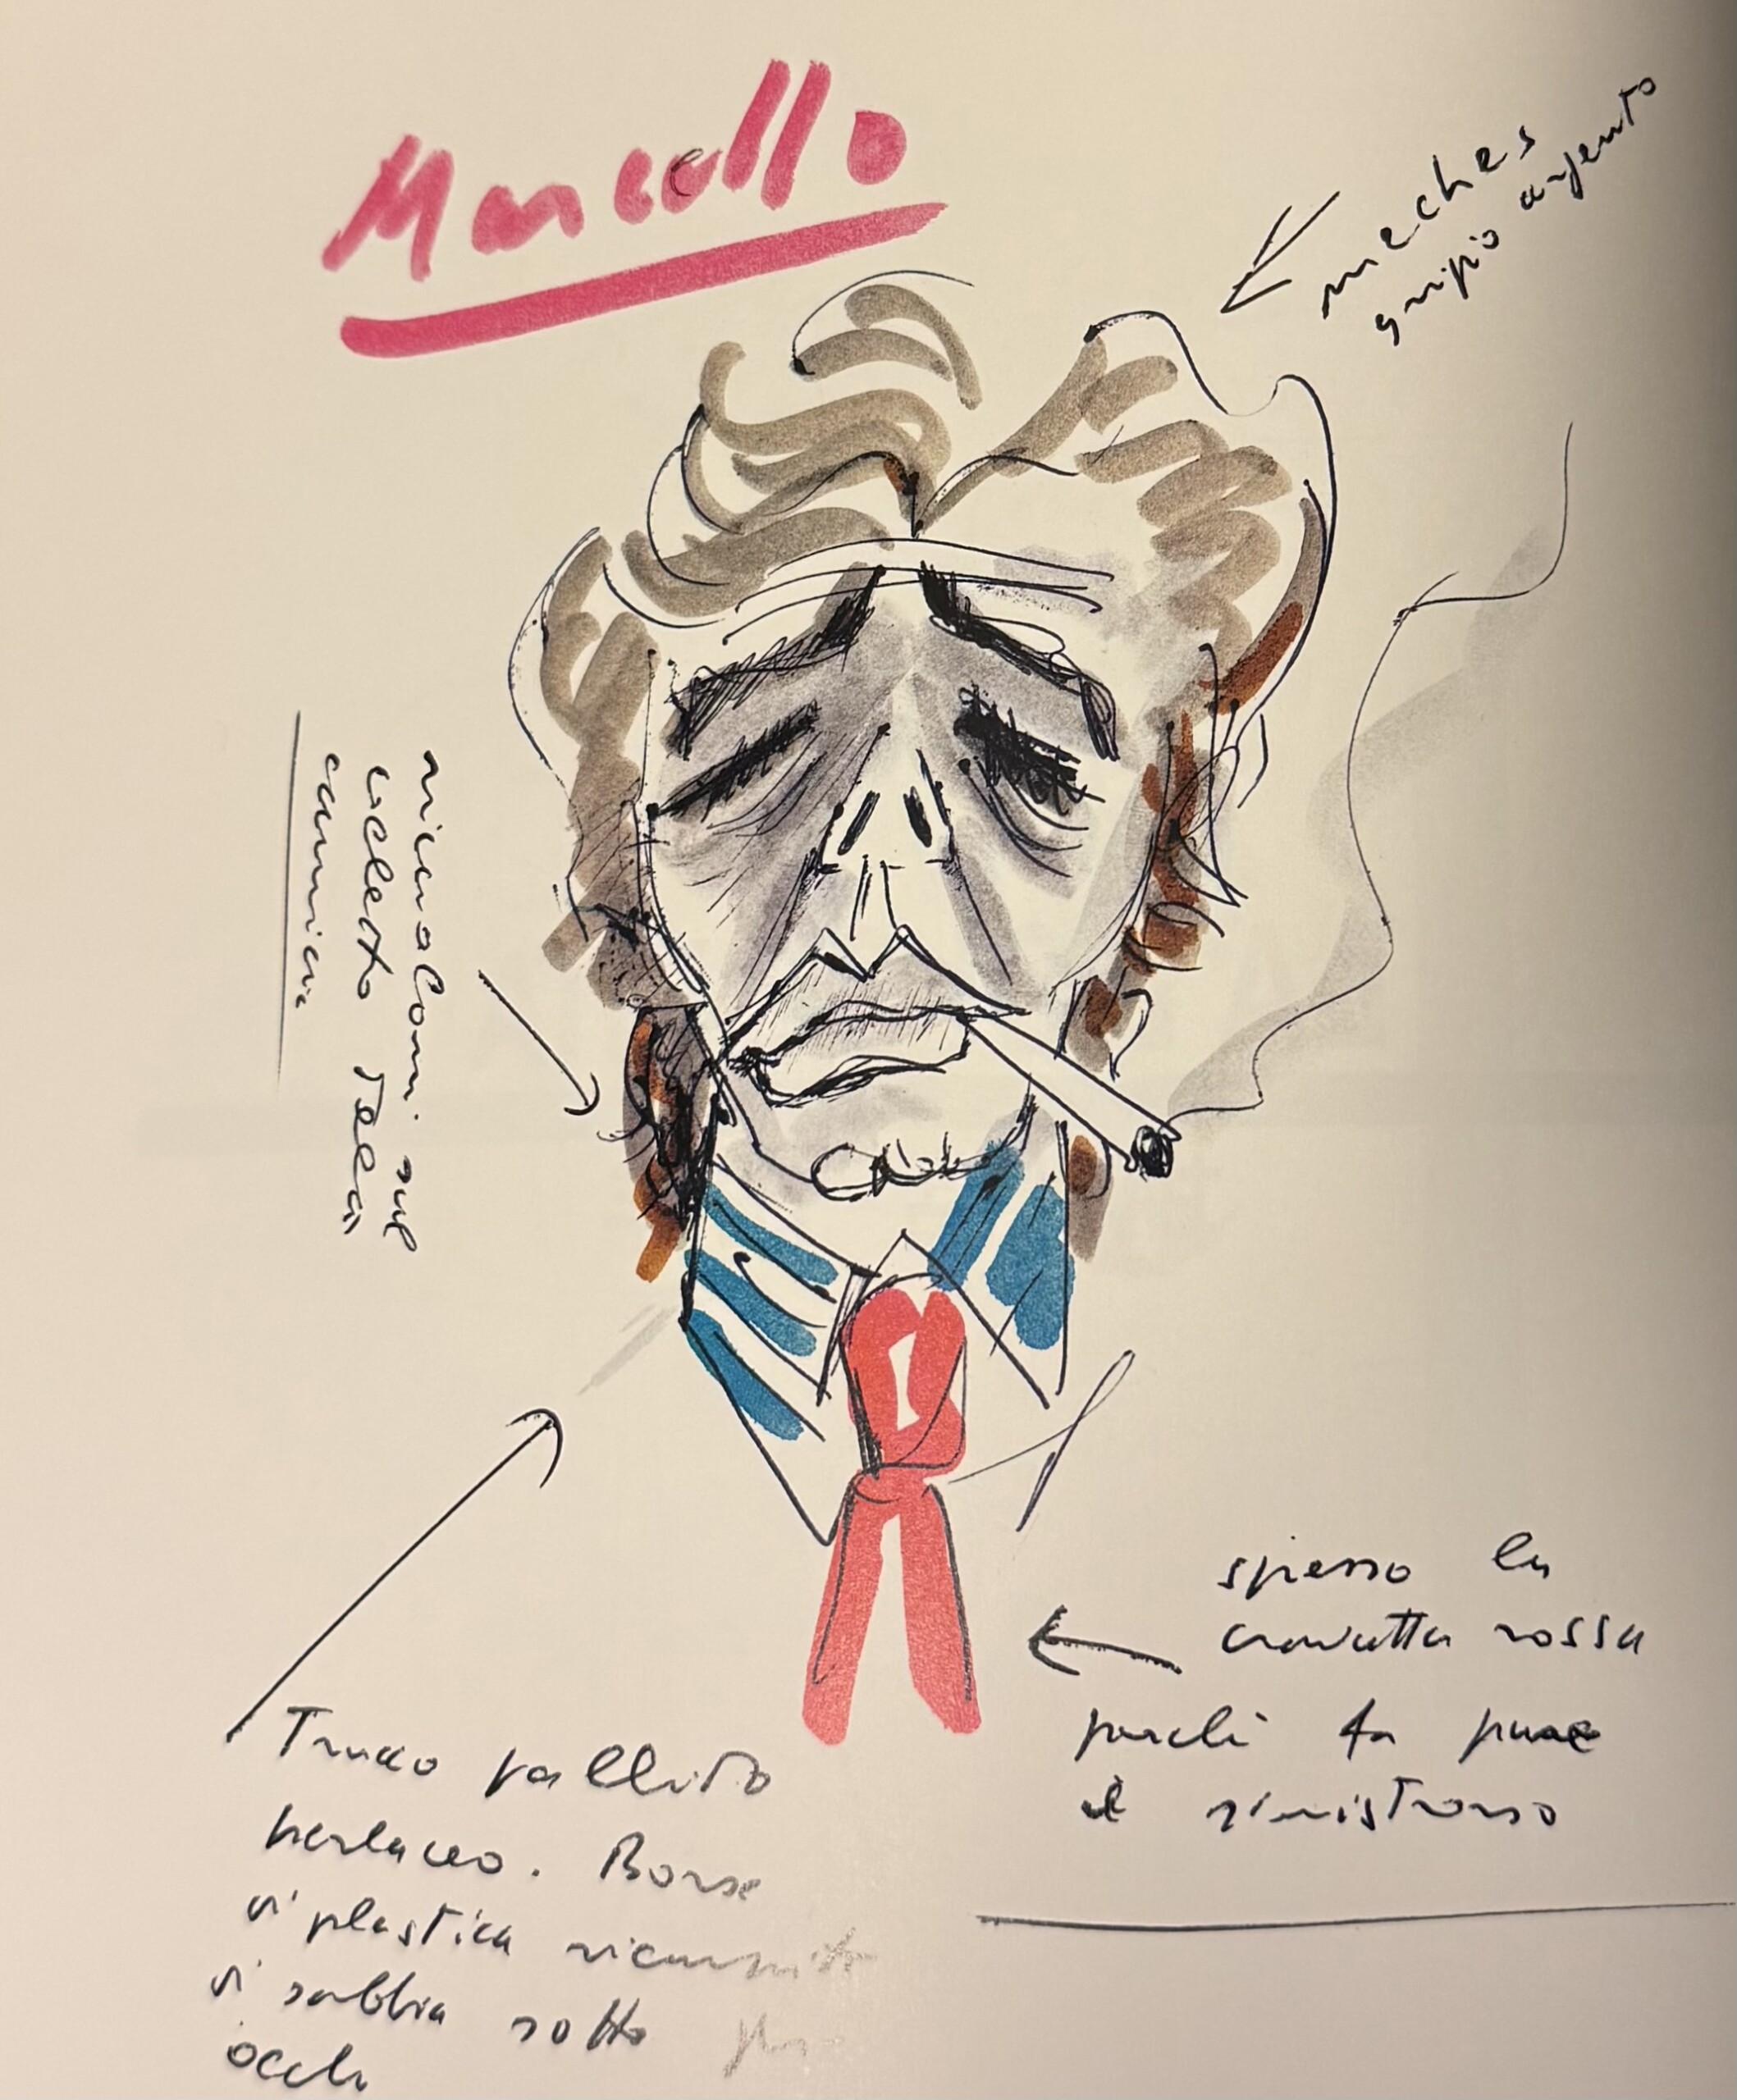 Marcello
meches
grigio argento
riccioloni sul
colletto della
camicia
spesso la
cravatta rossa
perché fa pure
il sinistrorso
Trucco pallido
perlaceo. Borse
di plastica
di sabbia sotto
occhi